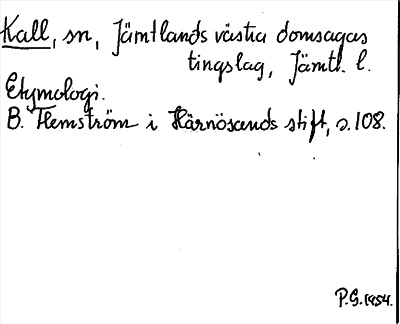 Kall, sn, Jämtlands västra domsagas
tingslag, Jämtl. l.
Etymologi.
B. Flemström i Härnösands stift, s. 108.
P.G. 1954.